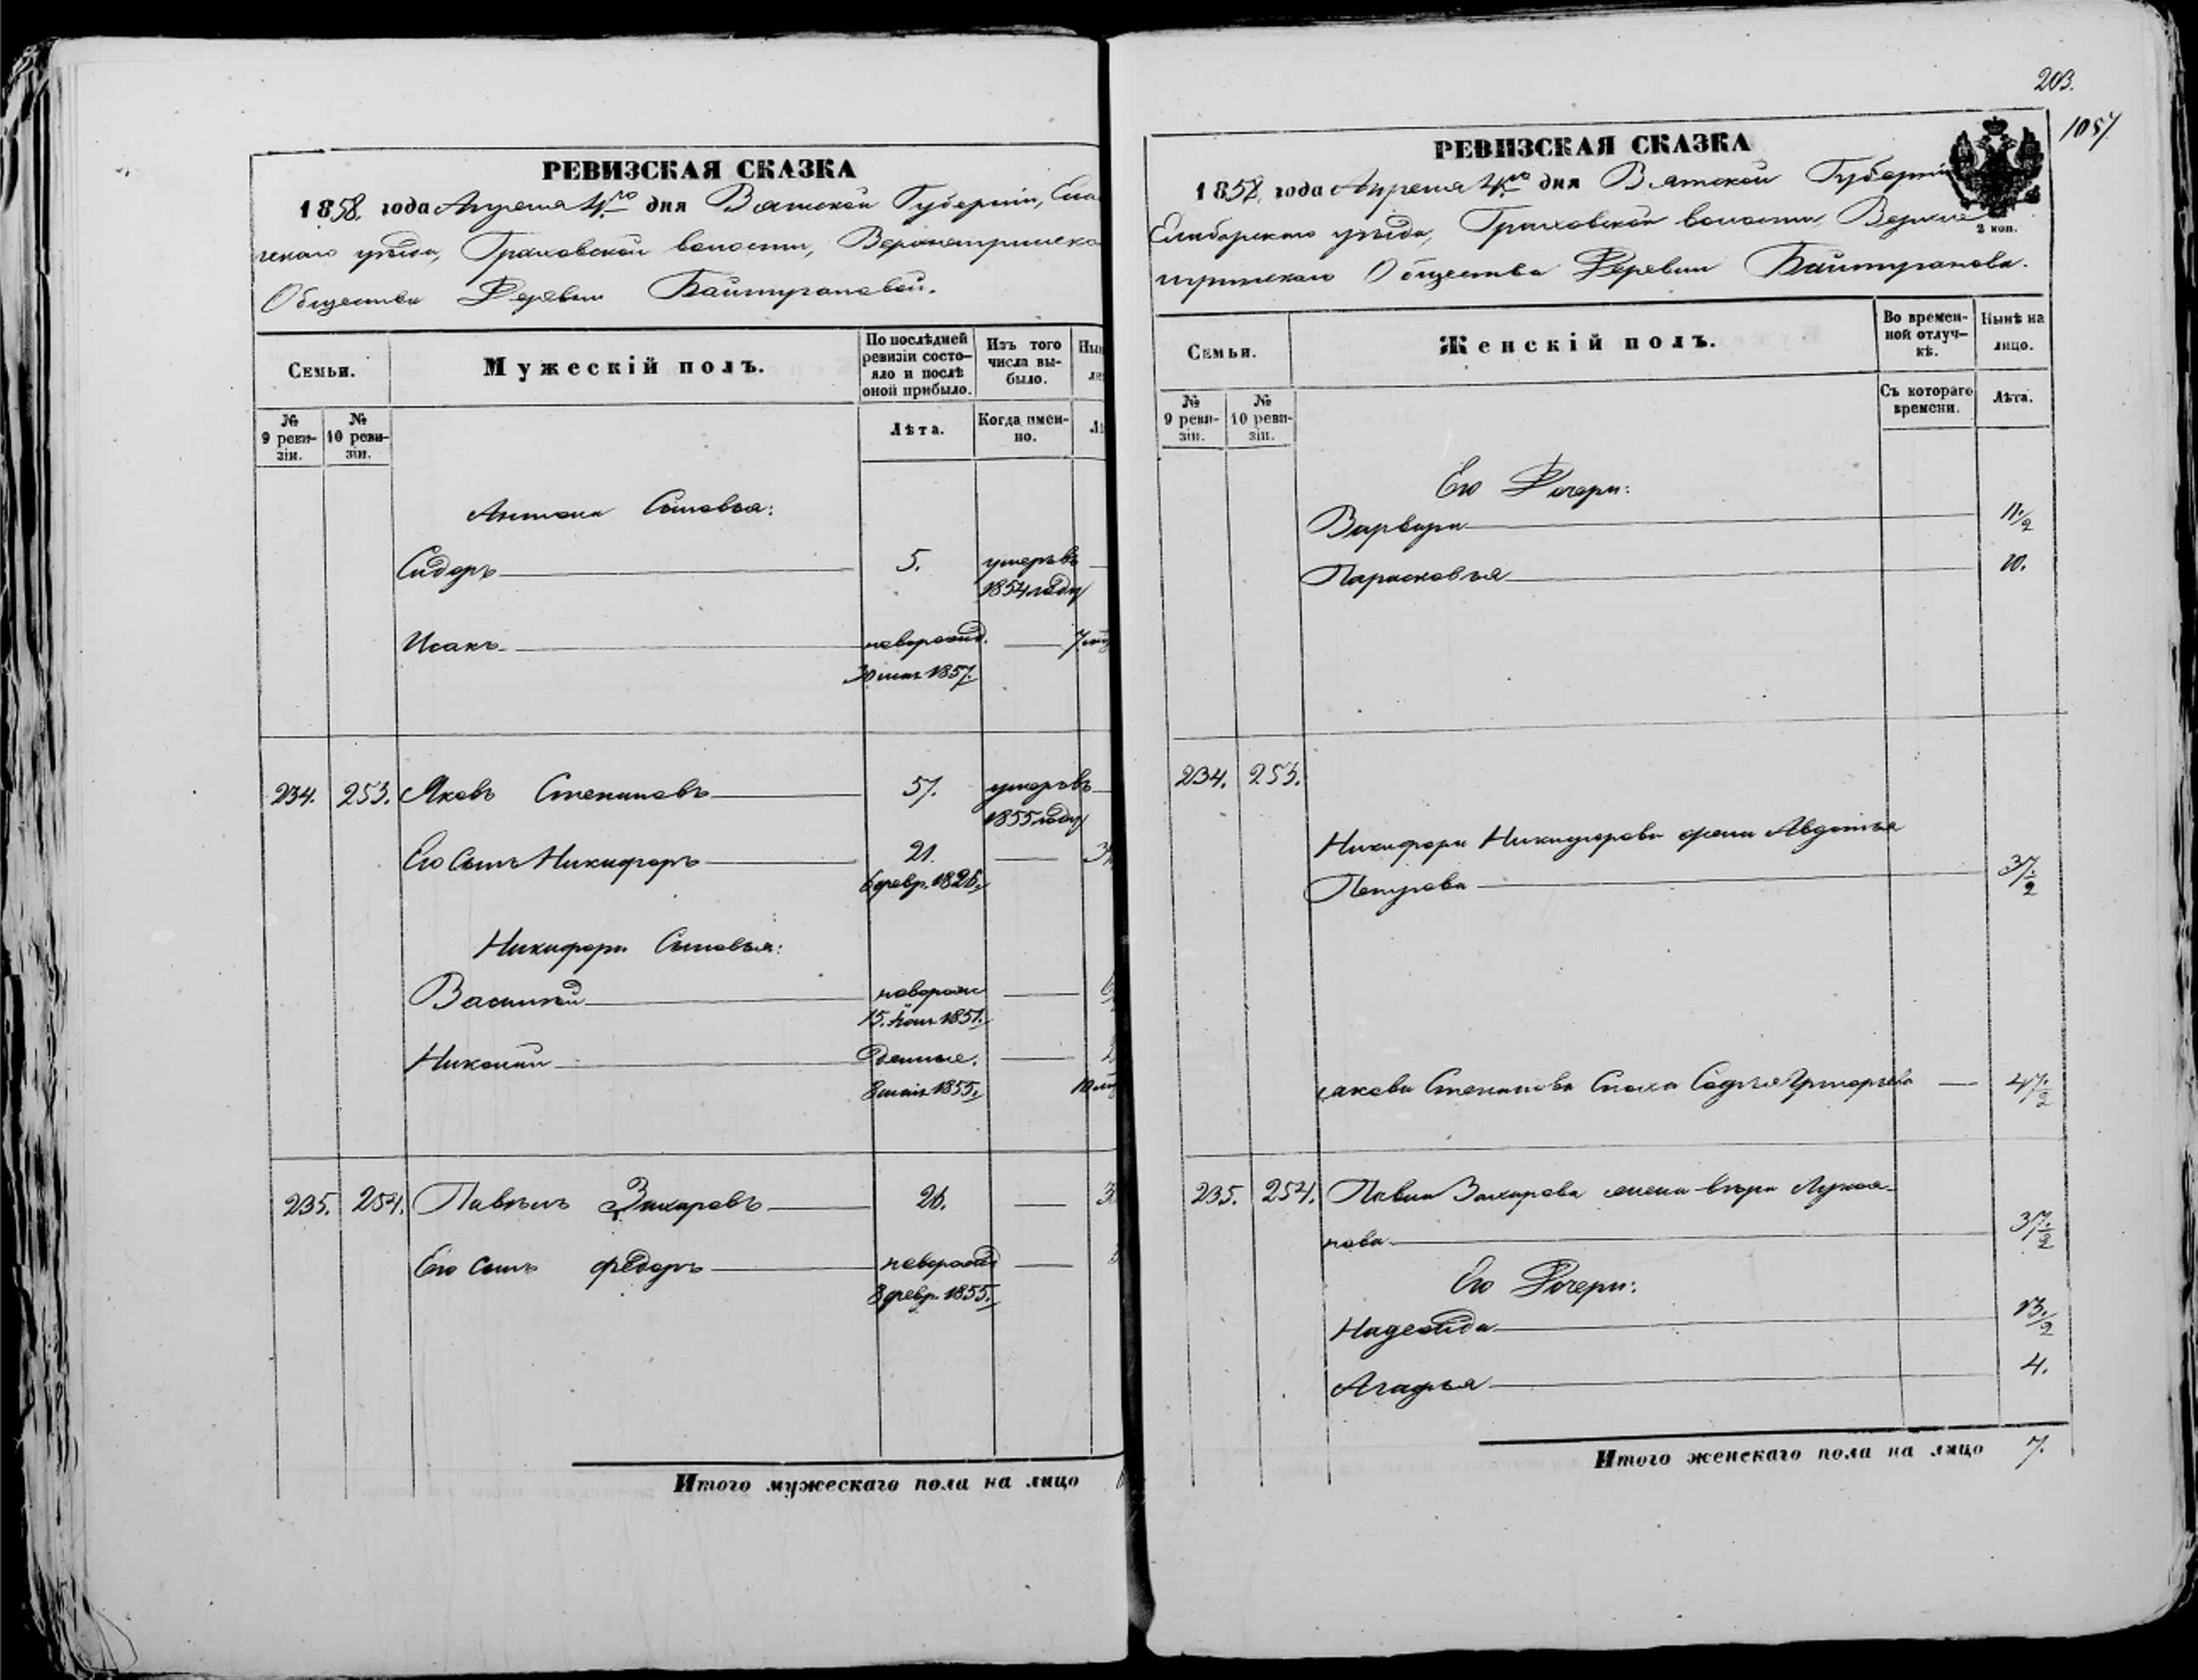 203.
1057
РЕВИЗСКАЯ СКАЗКА
1858. года Апреля 4го дня Вятской Губернии, Ела
Граховской волости,
Общества Деревни Байтугановой.
Семьи.
Мужескій полъ.
По послѣдней ревизіи состо-
яло и послѣ оной прибыло.
Изъ того числа вы-
было.
№ 9 реви-
зіи.
№ 10 реви-
зіи.
Лѣта.
Когда имен-
но.
Антона Сыновья:
Сидоръ 5. умеръ въ
1854 году
Исакъ новорожд.
30 1857.
234. 253. Яковъ Степановъ 57. умеръ въ
1855 году
Его Сынъ Никифоръ 21.
6 февр. 1826.
Никифора Сыновья:
Василей новорож
15. 1851.
Николай
8 мая 1855.
235. 254. Павелъ Захаровъ 26.
Его сынъ Федоръ новорожд
8 февр. 1855.
Итого мужескаго пола на лицо
РЕВИЗСКАЯ СКАЗКА
1858. года Апреля 4го дня Вятской Губерніи
Елабугскаго уѣзда, Граховской волости,
Общества Деревни Байтуганова.
2 коп.
Семьи.
Женскій полъ.
Во времен-
ной отлуч-
кѣ.
Нынѣ на
лицо.
№ 9 реви-
зіи.
№ 10 реви-
зіи.
Съ котораго
времени.
Лѣта.
Его Дочери:
Варвара 11.½
Парасковья 10.
234. 253.
Никифора Никифорова жена Авдотья
Петрова 37.½
Степанова Сноха Софья Григорьева 47.½
235. 254. Павла Захарова жена вѣра Лукоя-
нова 37.½
Его Дочери:
Надежда 13.½
Агафья 4.
Итого женскаго пола на лицо 7.